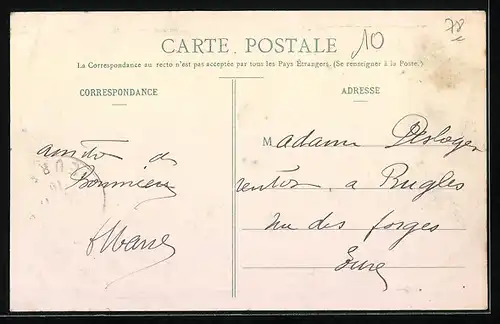 78
10
CARTE POSTALE
La Correspondance au recto n'est pas acceptée par tous les Pays Étrangers. (Se renseigner à la Poste.)
CORRESPONDANCE
ADRESSE
amitié de
Madame
à Rugles
rue des forges
Eure